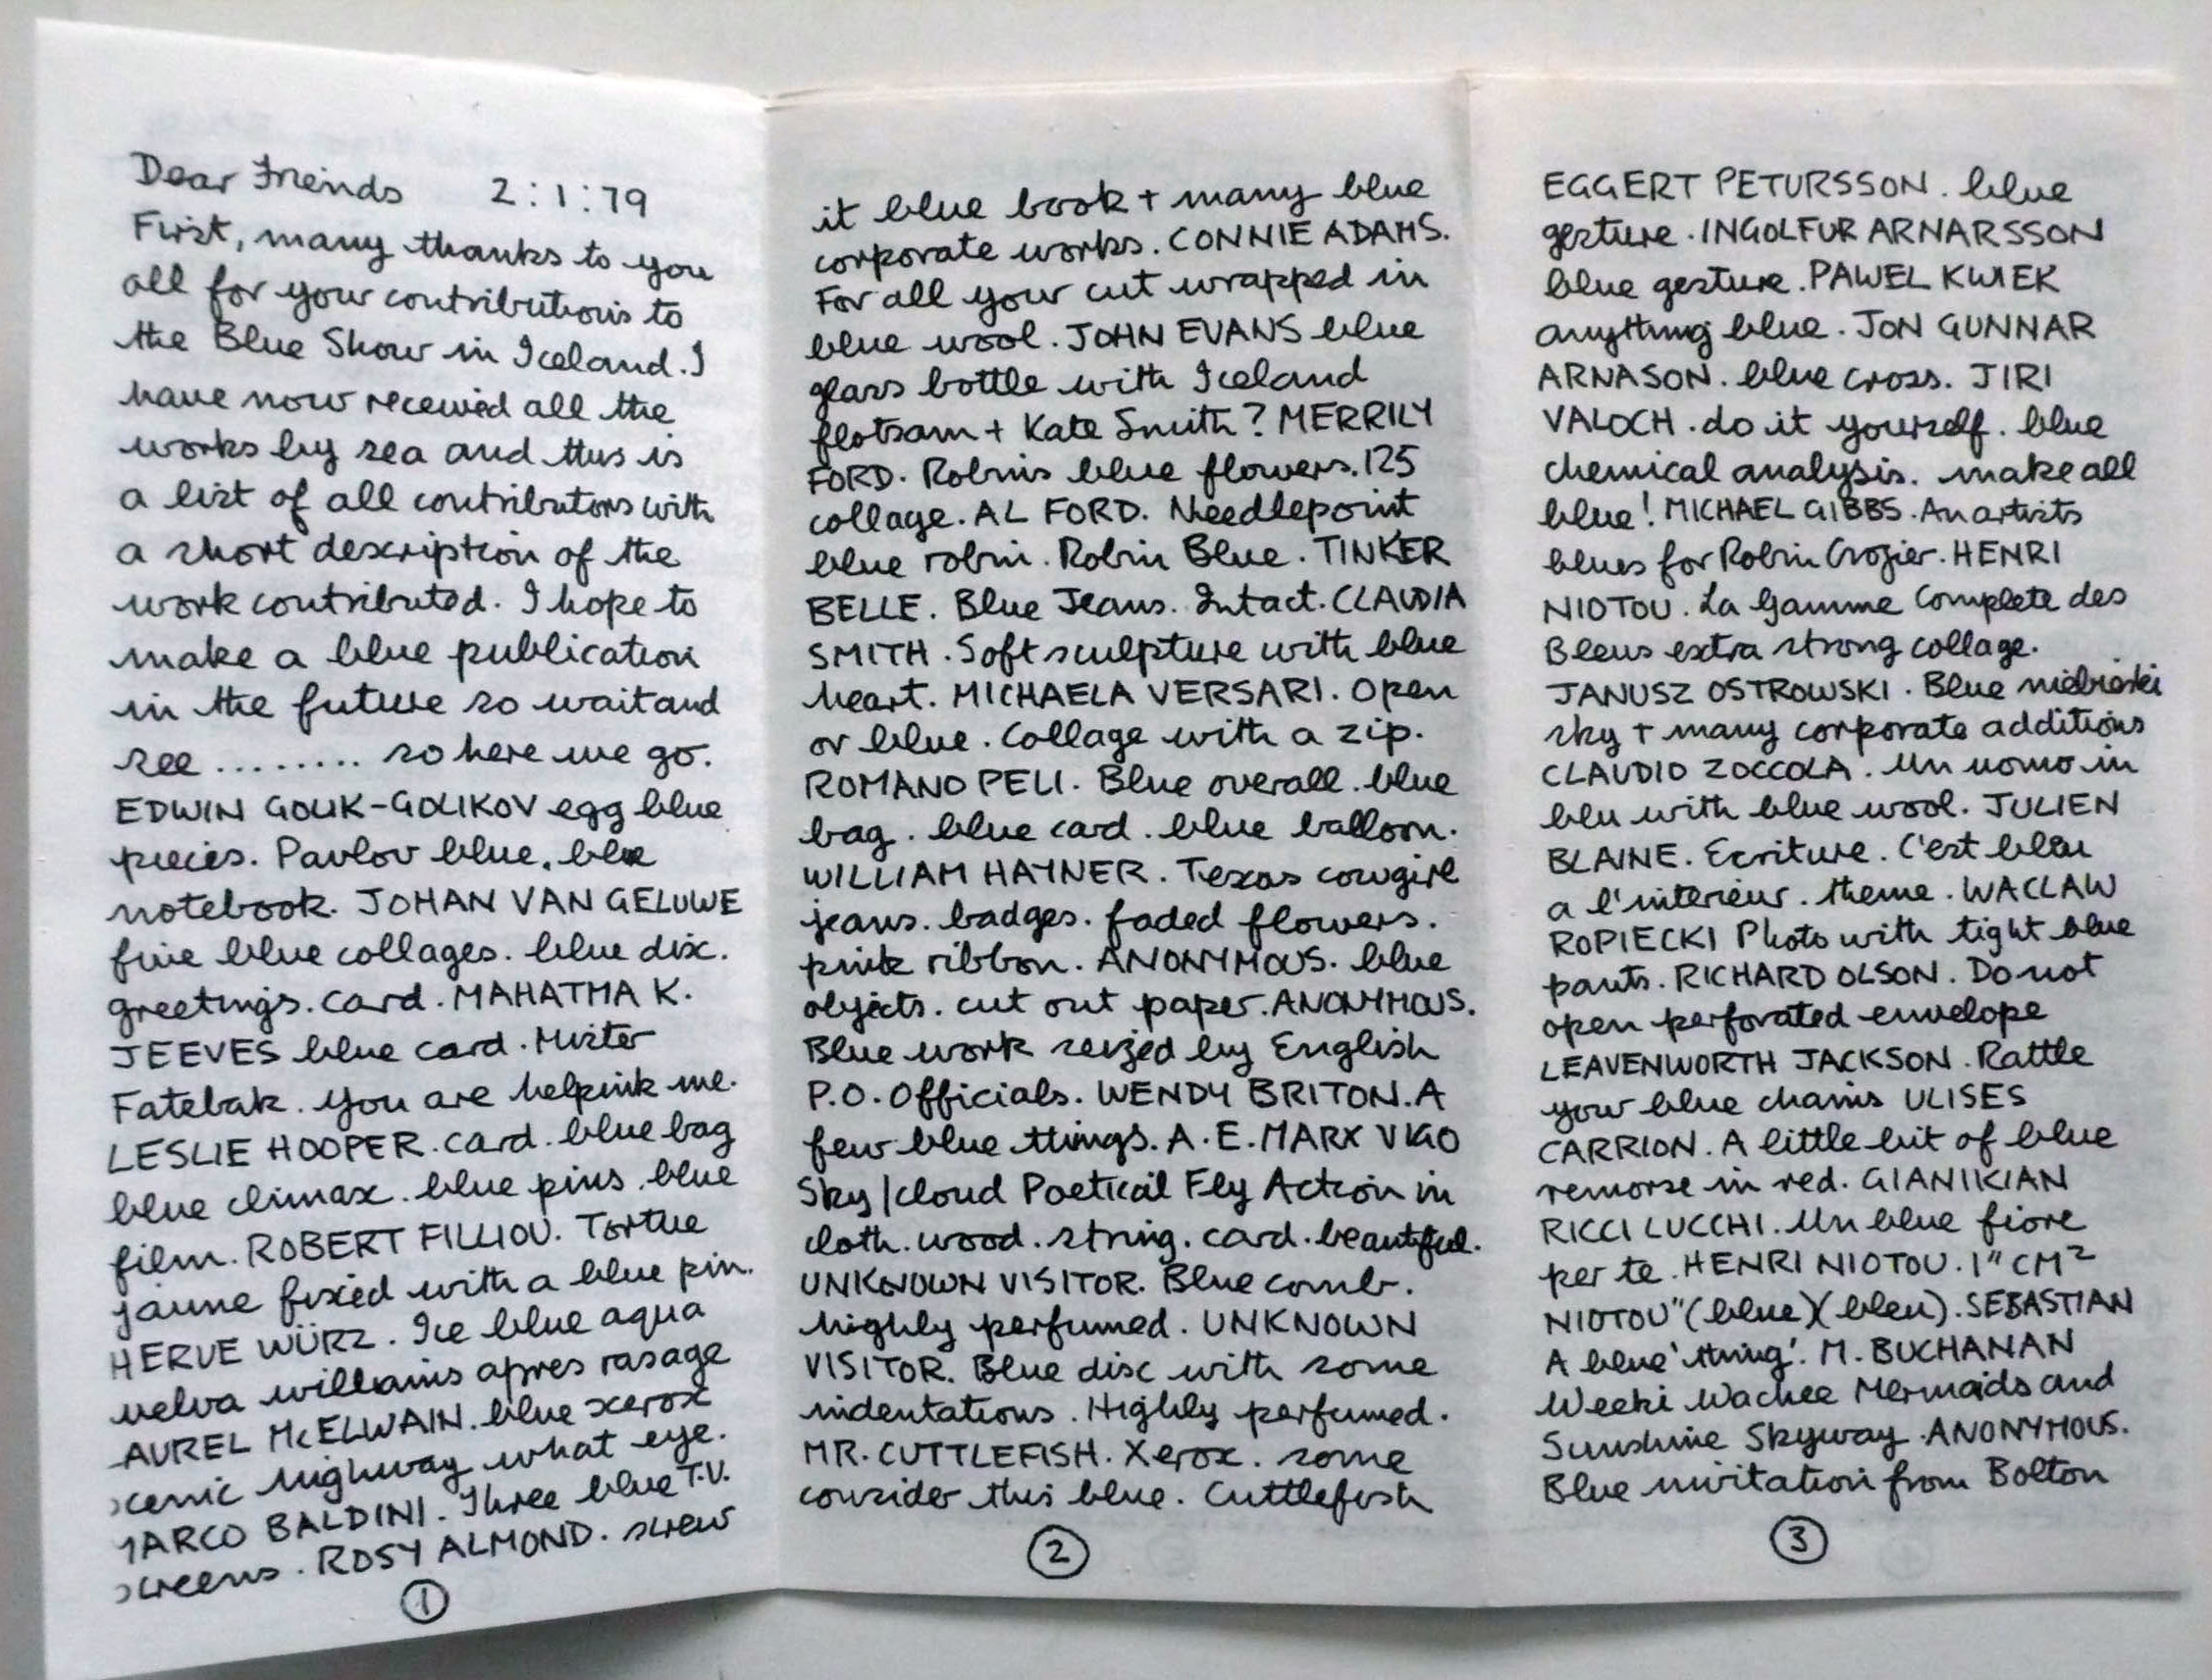 Dear Friends 2:1:79
First, many thanks to you
all for your contributions to
the Blue Show in Iceland. I
have now received all the
works by sea and this is
a list of all contributors with
a short description of the
work contributed. I hope to
make a blue publication
in the future so wait and
see ........ so here we go.
EDWIN GOLIK-GOLIKOV egg blue
pieces. Pavlov blue. blue
notebook. JOHAN VAN GELUWE
five blue collages. blue disc.
greetings. card. MAHATMA K.
JEEVES blue card. Mister
Fatebak. you are helpink me.
LESLIE HOOPER. card. blue bag
blue climax. blue pins. blue
film. ROBERT FILLIOU. Tortue
jaune fixed with a blue pin.
HERVE WÜRZ. Ice blue aqua
velva williams apres rasage
AUREL McELWAIN. blue xerox
scenic highway what eye.
MARCO BALDINI. Three blue T.V.
screens. ROSY ALMOND. screw
①
it blue book + many blue
corporate works. CONNIE ADAMS.
For all your cut wrapped in
blue wool. JOHN EVANS blue
glass bottle with Iceland
flotsam + Kate Smith? MERRILY
FORD. Robins blue flowers. 125
collage. AL FORD. Needlepoint
blue robin. Robin Blue. TINKER
BELLE. Blue Jeans. Intact. CLAUDIA
SMITH. Soft sculpture with blue
heart. MICHAELA VERSARI. Open
or blue. Collage with a zip.
ROMANO PELI. Blue overall. blue
bag. blue card. blue balloon.
WILLIAM HAYNER. Texas cowgirl
jeans. badges. faded flowers.
pink ribbon. ANONYMOUS. blue
objects. cut out paper. ANONYMOUS.
Blue work seized by English
P.O. Officials. WENDY BRITON. A
few blue things. A.E. MARX VIGO
Sky/cloud Poetical Fly Action in
cloth. wood. string. card. beautiful.
UNKNOWN VISITOR. Blue comb.
highly perfumed. UNKNOWN
VISITOR. Blue disc with some
indentations. Highly perfumed.
MR. CUTTLEFISH. Xerox. some
consider this blue. Cuttlefish
②
EGGERT PETURSSON. blue
gesture. INGOLFUR ARNARSSON
blue gesture. PAWEL KWIEK
anything blue. JON GUNNAR
ARNASON. blue cross. JIRI
VALOCH. do it yourself. blue
chemical analysis. make all
blue! MICHAEL GIBBS. An artists
blues for Robin Crozier. HENRI
NIOTOU. La Gamme Complete des
Bleus extra strong collage.
JANUSZ OSTROWSKI. Blue niebieski
sky + many corporate additions
CLAUDIO ZOCCOLA. Un uomo in
blu with blue wool. JULIEN
BLAINE. Ecriture. C'est bleu
a l'interieur. theme. WACLAW
ROPIECKI Photo with tight blue
pants. RICHARD OLSON. Do not
open perforated envelope
LEAVENWORTH JACKSON. Rattle
your blue chains ULISES
CARRION. A little bit of blue
remorse in red. GIANIKIAN
RICCI LUCCHI. Un blue fiore
per te. HENRI NIOTOU. 1" CM²
NIOTOU" (blue)(bleu). SEBASTIAN
A blue 'thing'. M. BUCHANAN
Weeki Wachee Mermaids and
Sunshine Skyway. ANONYMOUS.
Blue invitation from Bolton
③